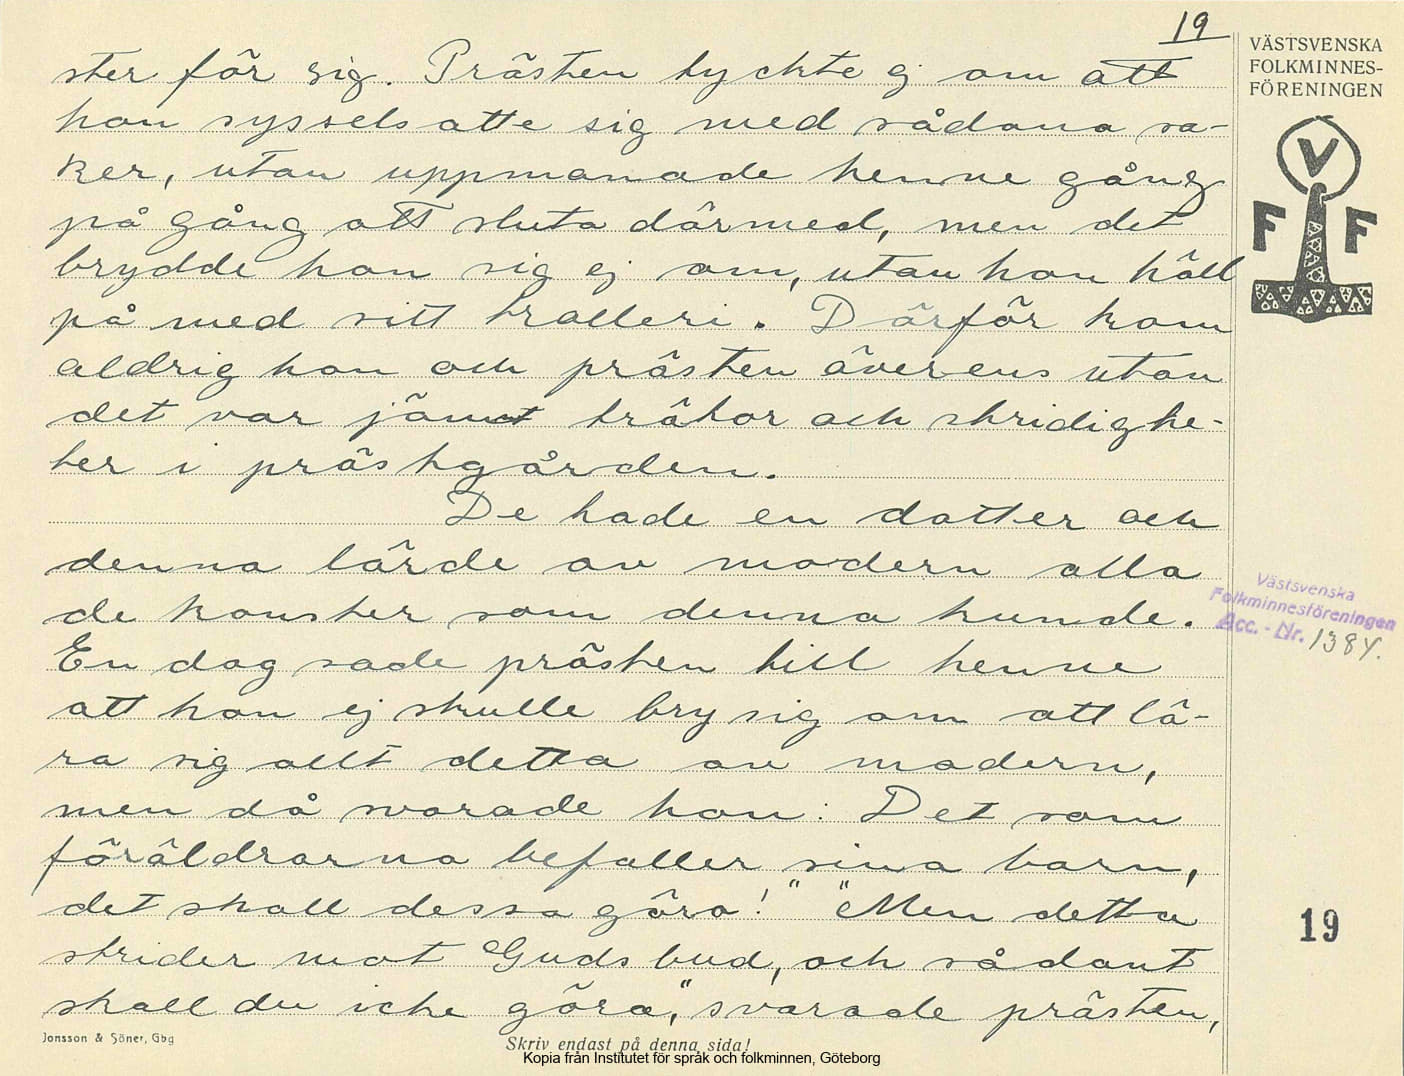 19
ster för sig. Prästen tyckte ej om att
hon sysselsatte sig med sådana sa-
ker, utan uppmanade henne gång
på gång att sluta därmed, men det
brydde hon sig ej om, utan hon höll
på med sitt trolleri. Därför kom
aldrig hon och prästen överens utan
det var jämt träter och stridighe-
ter i prästgården.
De hade en dotter och
denna lärde av modern alla
de konster som denna kunde.
En dag sade prästen till henne
att hon ej skulle bry sig om att lä-
ra sig allt detta av modern,
men då svarade hon: Det som
föräldrarna befaller sina barn,
det skall dessa göra!" "Men detta
strider mot Guds bud, och sådant
skall du icke göra," svarade prästen,
VÄSTSVENSKA
FOLKMINNES-
FÖRENINGEN
V
F F
Västsvenska
Folkminnesföreningen
Acc. - Nr. 1384.
19
Jonsson & Söner, Gbg
Skriv endast på denna sida!
Kopia från Institutet för språk och folkminnen, Göteborg